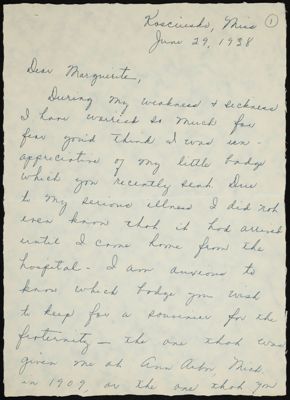 Kosciusko, Miss ①
June 29, 1938
Dear Marguerite,
During my weakness & sickness
I have worried so much for
fear you'd think I was un-
appreciative of my little badge
which you recently sent. Due
to my serious illness I did not
even know that it had arrived
until I came home from the
hospital - I am anxious to
know which badge you wish
to keep for a souvenir for the
fraternity - the one that was
given me at Ann Arbor, Mich.
in 1909, or the one that you